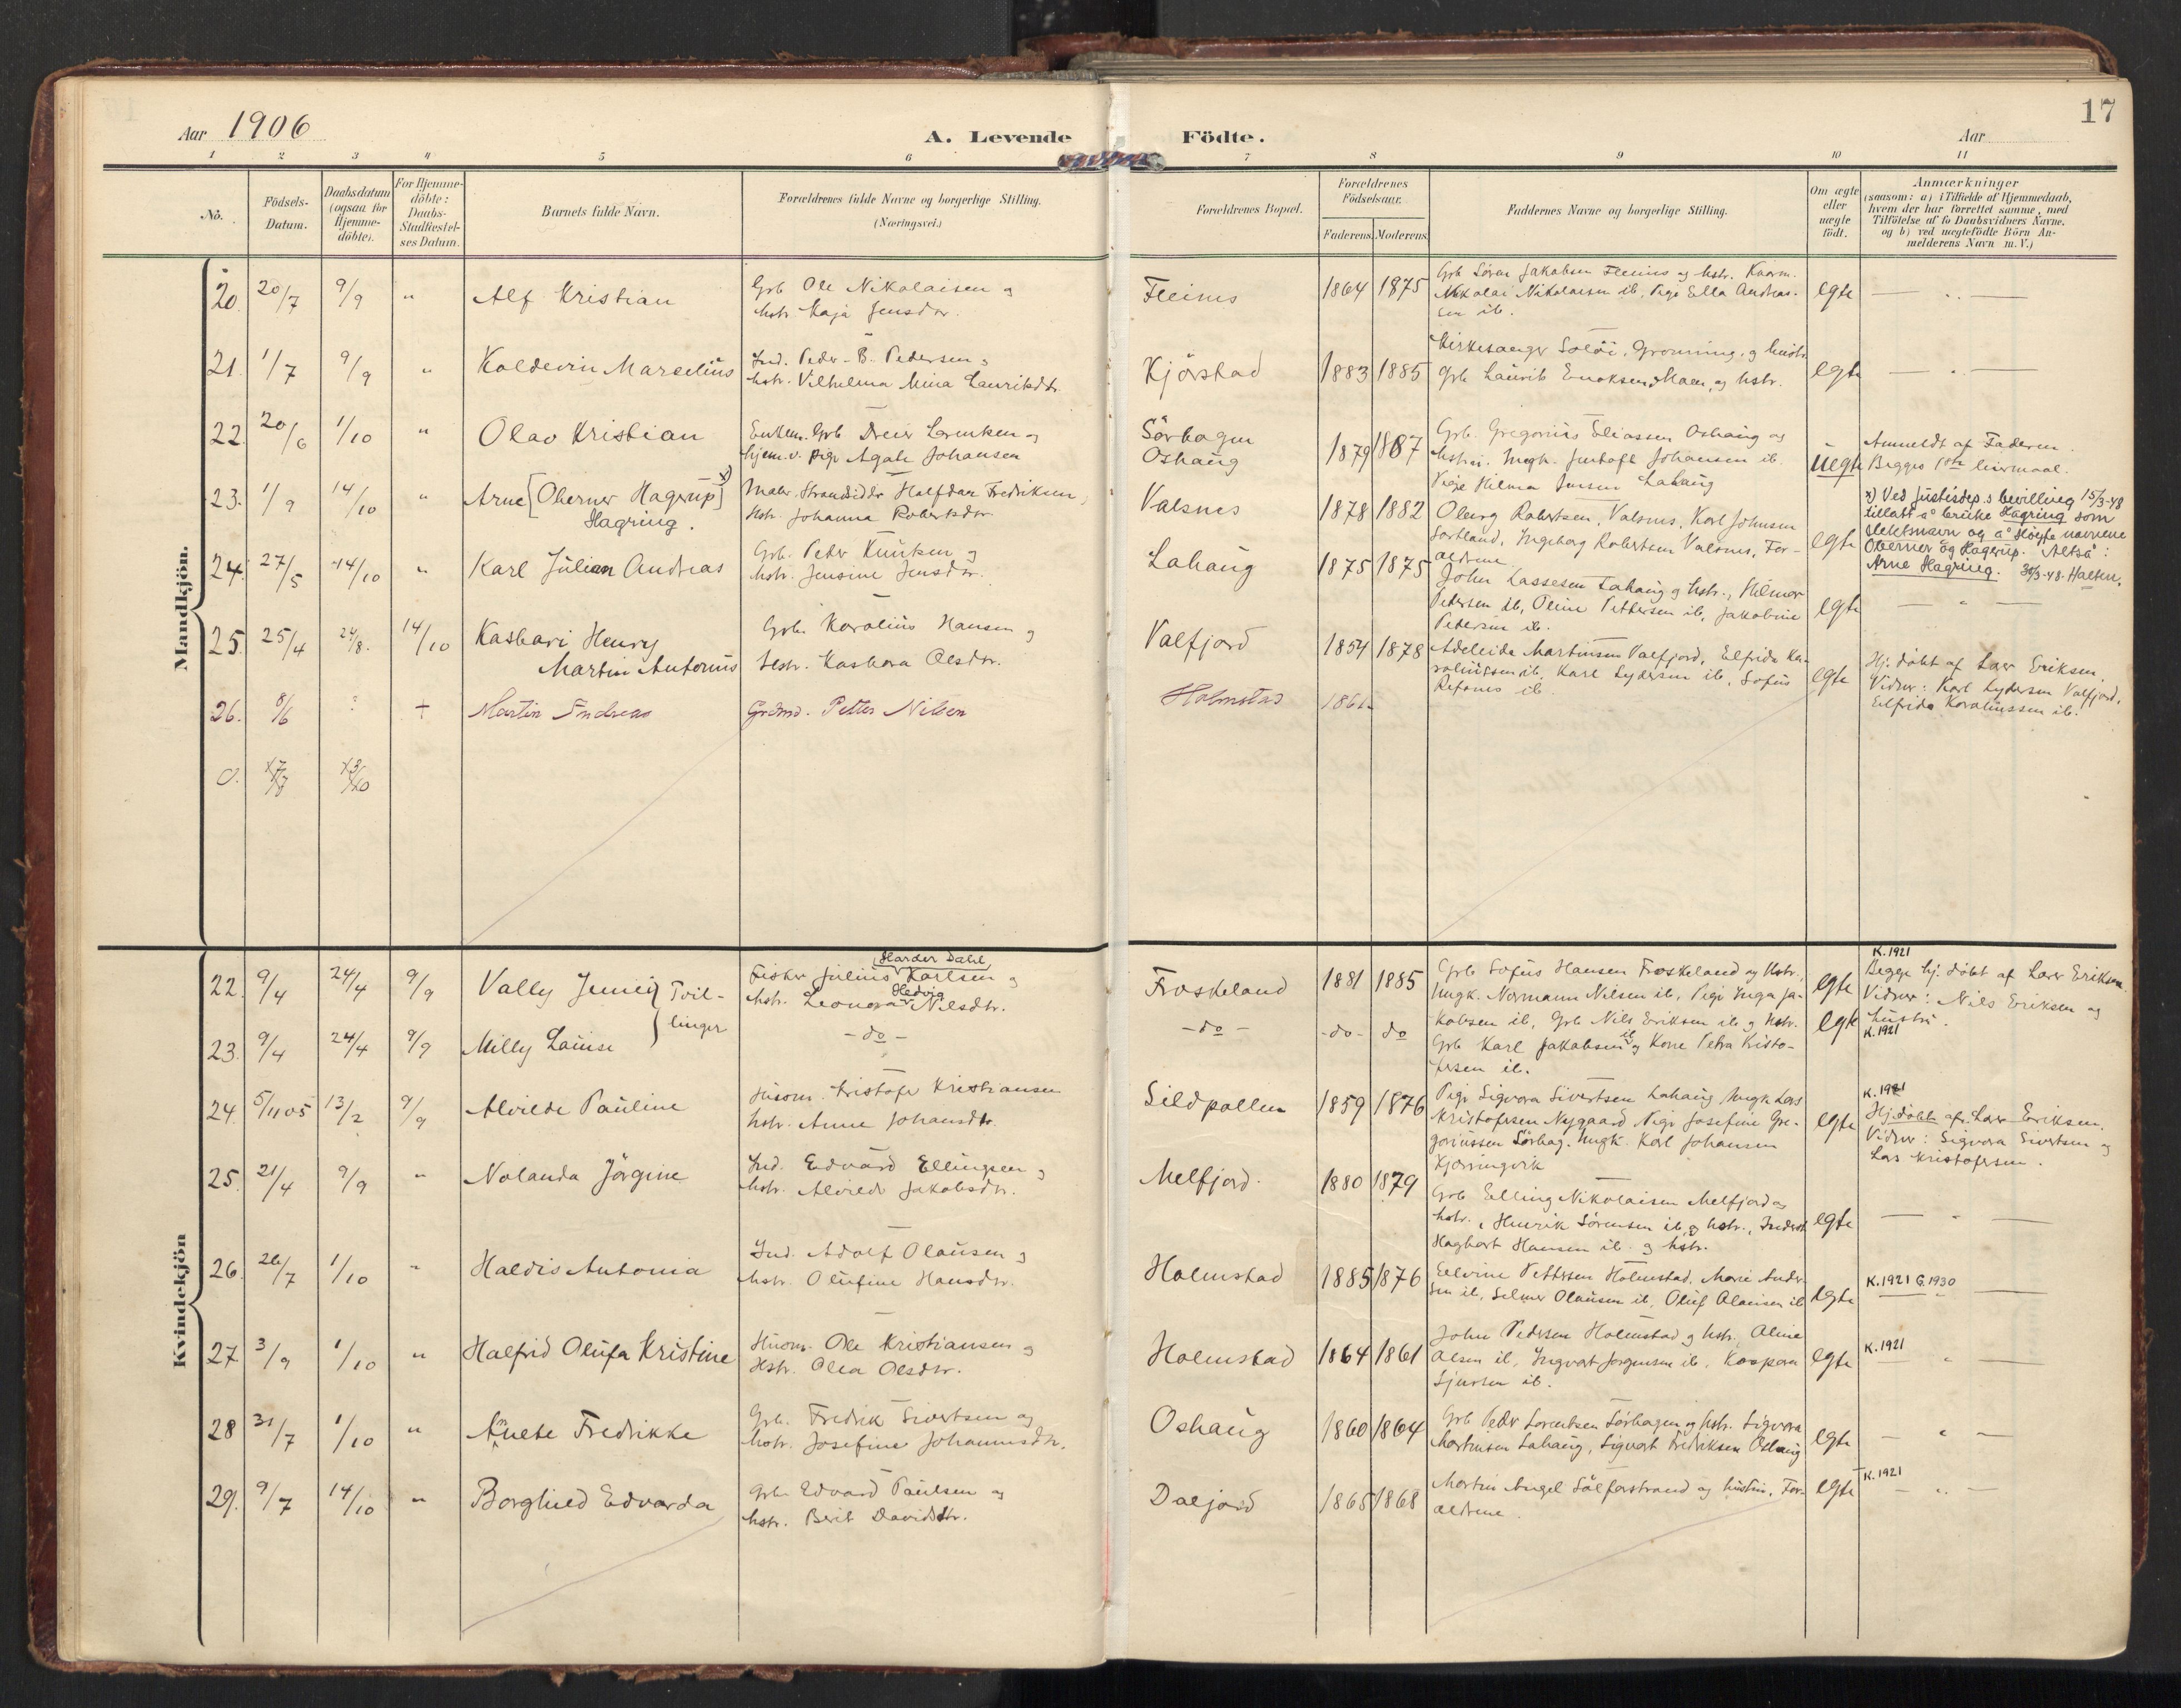 17
Aar 1906
A. Levende Födte.
Aar
1 2 3 4 5 6 7 8 9 10 11
No.
Födsels-Datum.
Daabsdatum (ogsaa for Hjemme-döbte).
For Hjemme-döbte: Daabs-Stadfæstel-ses Datum.
Barnets fulde Navn.
Forældrenes fulde Navne og borgerlige Stilling.
(Næringsvei.)
Forældrenes Bopæl.
Forældrenes Födselsaar.
Faderens. Moderens.
Faddernes Navne og borgerlige Stilling.
Om ægte eller uægte födt.
Anmærkninger
(saasom: a) i Tilfælde af Hjemmedaab,
hvem der har forrettet samme, med
Tilföielse af to Daabsvidners Navne.
og b) ved uægtefödte Börn An-
melderens Navn m. V.)
Mandkjön.
20. 20/7 9/9 " Alf Kristian
Grb Ole Nikolaisen og
hstr. Kaja Jensdtr.
Fleines 1864 1875
Grb Sören Jakobsen Fleines og hstr.
Nikolai Nikolaisen ib, Pige Ella Andrea-
sen ib.
egte — " —
21. 1/7 9/9 " Koldevin Marselius
Ind. Peder B. Pedersen og
hstr. Vilhelmа Mina Lauritsdtr.
Kjörstad 1883 1885
Kirkesanger Solöi, Gronning, og hustr.
Grb Laurits Enoksen, og hstr.
egte — " —
22. 20/6 1/10 " Olav Kristian
Enkem. Grb Dreier Lorentsen og
hjem.v. pige Agate Johansen
Sörhagen
Oshaug 1879 1887
Grb. Gregorius Eliassen Oshaug og
hstr. Ungk. Johansen ib.
Pige Helma Jensen Lahaug
uegte
Anmeldt af Faderen.
Begges 1ste leiermaal.
23. 1/9 14/10 " Arne [Oberner Hagerup] x)
Hagring.
Maler, Strandsidder Halfdan Fredriksen,
Hstr. Johanna Robertsdtr.
Valsnes 1878 1882
Oluf Robertsen, Valsnes, Karl Johnsen
Sortland, Ingeborg Robertsen Valsnes, For-
ældrene.
egte
x) Ved Justisdep.s bevilling 15/3-48
tillatt å bruke Hagring som
slektsnavn og å slöyfe navnene
Oberner og Hagerup. Altså:
Arne Hagring. 30/3-48. Halsen.
24. 27/5 14/10 " Karl Julian Andreas
Grb. Peder Knutsen og
hstr. Jensine Jensdtr.
Lahaug 1875 1875
John Lassesen Lahaug og hstr., Helmer
Pedersen ib, Oline Pettersen ib, Jakobine
Pedersen ib.
egte — " —
25. 25/4 24/8. 14/10 Kasbari Henry
Martin Antonius
Grb. Karolius Hansen og
hstr. Kaspara Olsdtr.
Valfjord 1854 1878
Adeleide Martinsen Valfjord, Elfrida Ka-
roliussen ib, Karl Lydersen ib, Sofus
Refsnes ib.
egte
Hj. döbt af Lærer Eriksen.
Vidner: Karl Lydersen Valfjord,
Elfrida Karoliussen ib.
26. 8/6 ? + Martin Andreas
Grdmd. Petter Nilsen
Holmstad 1861
Kvindekjön
22. 9/4 24/4 9/9 Vally Jenny } Tvil-
Fisker Julius Karlsen og
Harder Dahl
hstr. Leonora Hedvig Nilsdtr.
Froskeland 1881 1885
Grb Sofus Hansen Froskeland og hstr.,
Ungk. Normann Nilsen ib, Pige Inga Ja-
kobsen ib, Grb Nils Eriksen ib og hstr.
egte
K. 1921
Begge hj. döbt af Lærer Eriksen.
Vidner: Nils Eriksen og
hustru.
23. 9/4 24/4 9/9 Milly Louise } linger
-do-
-do- -do- do
Grb Karl Jakobsen ib og Kone Petra Kristo-
fersen ib.
egte
K. 1921
24. 5/11 05 13/2 9/9 Alvilde Pauline
Husm. Kristofer Kristiansen
hstr. Anne Johansdtr.
Sildpollen 1859 1876
Pige Sigvora Sivertsen Lahaug, Ungk. Lars
Kristofersen Nygaard, Pige Josefine Gre-
goriussen Sörhag. Ungk. Karl Johansen
Kjerringvik
egte
K. 1921
Hj.döbt af Lærer Eriksen.
Vidner: Sigvora Sivertsen og
Lars Kristofersen.
25. 21/4 9/9 " Nolanda Jörgine
Ind. Edvard Ellingsen og
hstr. Alvilde Jakobsdtr.
Melfjord. 1880 1879
Grb Elling Nikolaisen Melfjord og
hstr., Henrik Sörensen ib og hstr.,
Hagbart Hansen ib. og hstr.
egte — " —
26. 26/7 1/10 " Haldis Antonia
Ind. Adolf Olausen og
hstr. Olufine Hansdtr.
Holmstad 1885 1876
Elvine Pettersen Holmstad, Marie Ander-
sen ib, Selmer Olausen ib, Oluf Olausen ib
egte
K. 1921 G. 1930
27. 3/9 1/10 " Halfrid Olufa Kristine
Husm. Ole Kristiansen og
Hstr. Olea Olsdtr.
Holmstad 1864 1861
John Pedersen Holmstad og hstr. Aline
Olsen ib, Ingvart Jörgensen ib, Kaspara
Sjursen ib.
egte
K. 1921
— " —
28 31/7 1/10 " Anete Fredrikke
Grb. Fredrik Sivertsen og
hstr. Josefine Johannesdtr.
Oshaug 1860 1864
Grb Peder Lorentsen Sörhagen og hstr. Sigvora
Martinsen Lahaug, Sigvart Fredriksen Oshaug
egte — " —
29. 9/7 14/10 " Borghild Edvarda
Grb. Edvard Paulsen og
hstr. Berit Davidsdtr.
Daljord 1865 1868
Martin Angel Sölferstrand og hustru, For-
ældrene.
egte
K. 1921
— " —